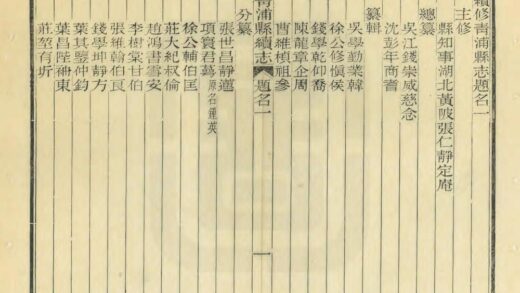 續修靑浦縣志題名一
主修
縣知事湖北黃陂張仁靜定庵
總纂
吳江錢崇威慈念
沈彭年商耆
纂輯
吳學勤葉韓
徐公修愼侯
錢學乾仰喬
陳龍章企周
曹維楨祖參
靑浦縣續志 題名一 一
分纂
張世昌靜蓮
項寰君蓦原名鍾英
徐公輔伯匡
莊大紀叔倫
趙鴻書雪安
李樹棠甘伯
張維翰伯良
錢學坤靜方
葉其鑒仲鈞
葉昌陛硎東
莊堃有圻